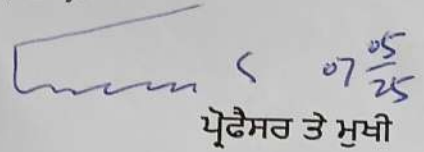 07 05/25
ਪ੍ਰੋਫੈਸਰ ਤੇ ਮੁਖੀ